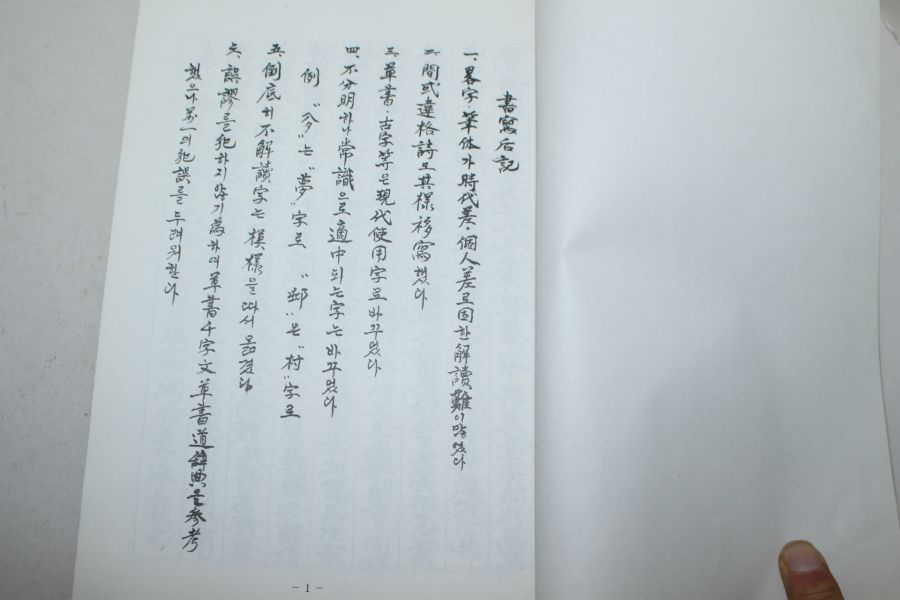 書寫后記
一、畧字·筆体가 時代差·個人差로 因한 解讀難이 많었다
二、間或 違格詩도 其樣 移寫했다
三、草書·古字等은 現代使用字로 바꾸었다
四、不分明하나 常識으로 適中되는 字는 바꾸었다
例 "夛"는 "夢"字로 "邨"은 "村"字로
五、倒底히 不解讀字는 模樣을 따서 옮겼다
六、誤謬를 犯하지 않기 爲하여 草書千字文 草書道辭典을 參考
했으나 萬一의 犯誤를 두려워한다
- 1 -